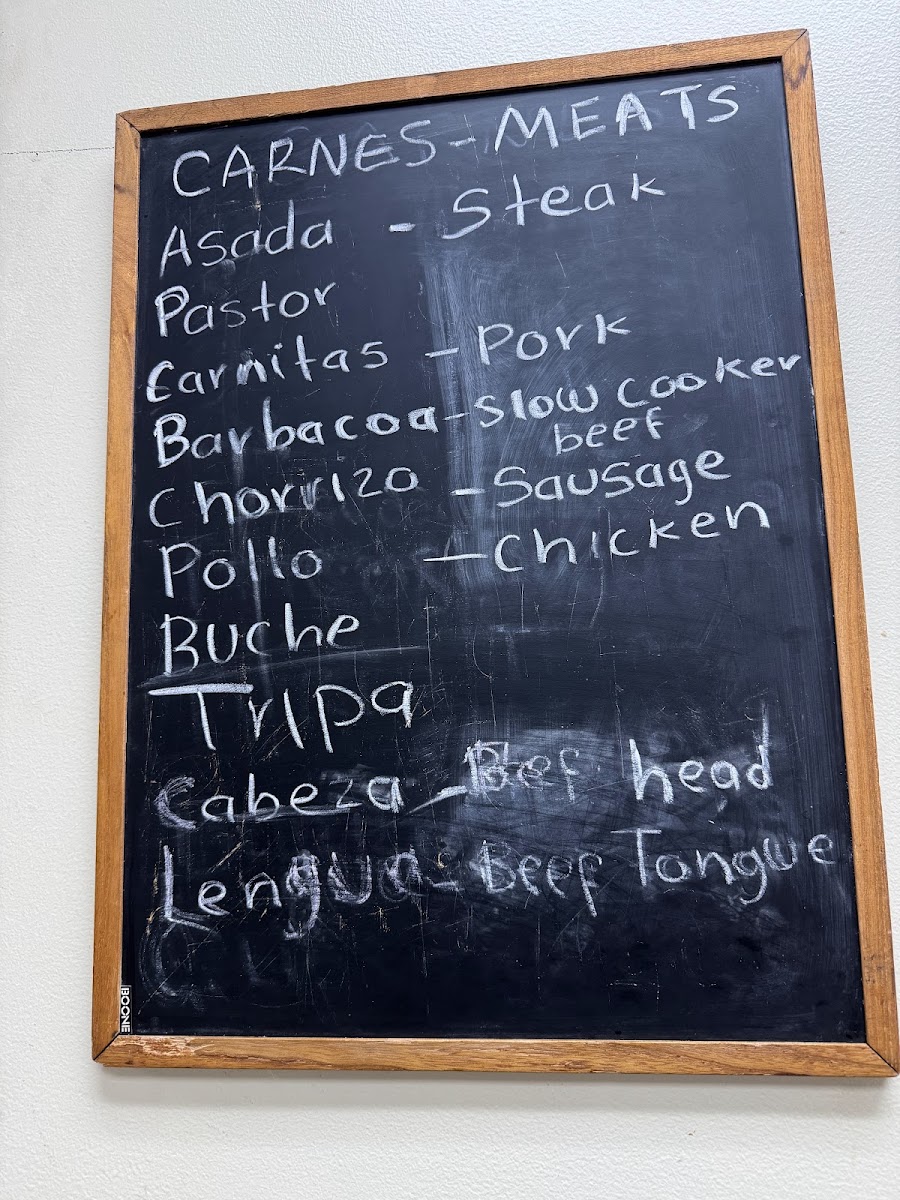 CARNES - MEATS
Asada - Steak
Pastor
Carnitas - Pork
Barbacoa - Slow Cooker
beef
Chorrizo - Sausage
Pollo - Chicken
Buche
Tripa
Cabeza - Beef head
Lengua - Beef Tongue
BOONE